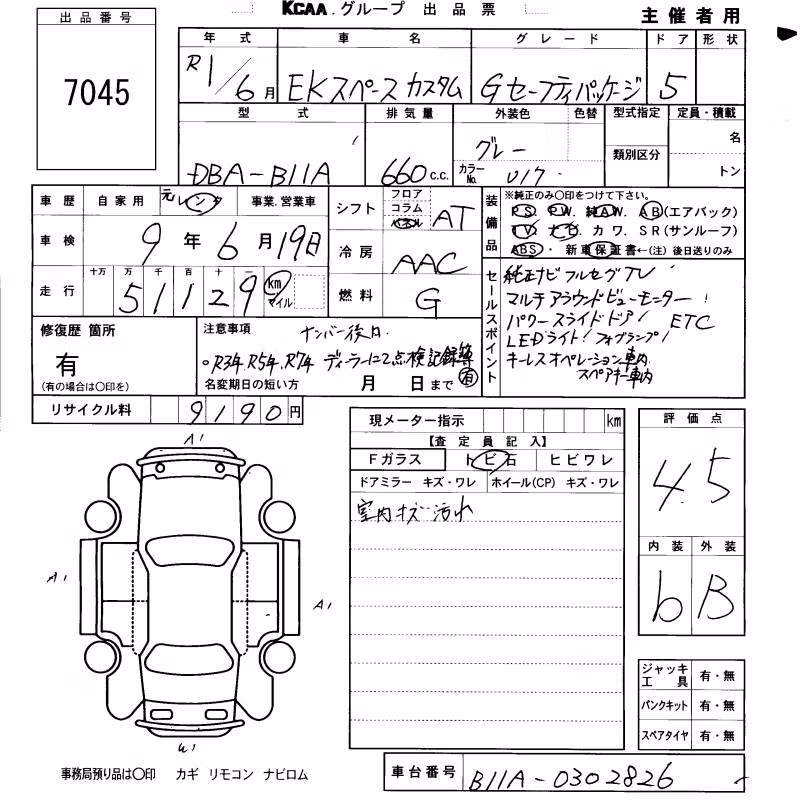 KCAA.グループ 出品票
主催者用
出品番号
7045
年式 車名 グレード ドア 形状
R1/6月 EKスペースカスタム Gセーフティパッケージ 5
型式 排気量 外装色 色替 型式指定 定員・積載
DBA-B11A 660c.c. グレー 名
カラーNo. U17 類別区分 トン
車歴 自家用 元レンタ 事業.営業車
車検 9年6月19日
走行 十万 万 千 百 十 一
51129 km マイル
シフト フロア コラム パネル AT
冷房 AAC
燃料 G
装備品 ※純正のみ〇印をつけて下さい。
PS. PW. 純AW. AB(エアバック)
TV. ナビ カワ. SR(サンルーフ)
ABS・新車保証書←(注)後日送りのみ
セールスポイント
純正ナビフルセグTV
マルチアラウンドビューモニター!
パワースライドドア! ETC
LEDライト!フォグランプ!
キーレスオペレーション車内
スペアキー車内
修復歴 箇所
有
(有の場合は〇印を)
注意事項 ナンバー後日
○R3年.R5年.R7年 ディーラーにて点検記録簿有
名変期日の短い方 月 日まで
リサイクル料 9190円
現メーター指示 km
【査定員記入】
Fガラス トビ石 ヒビワレ
ドアミラー キズ・ワレ ホイール(CP) キズ・ワレ
室内キズ汚れ
評価点
4.5
内装 外装
b B
ジャッキ工具 有・無
パンクキット 有・無
スペアタイヤ 有・無
A1
A1
A1
W1
事務局預り品は〇印 カギ リモコン ナビロム
車台番号 B11A-0302826